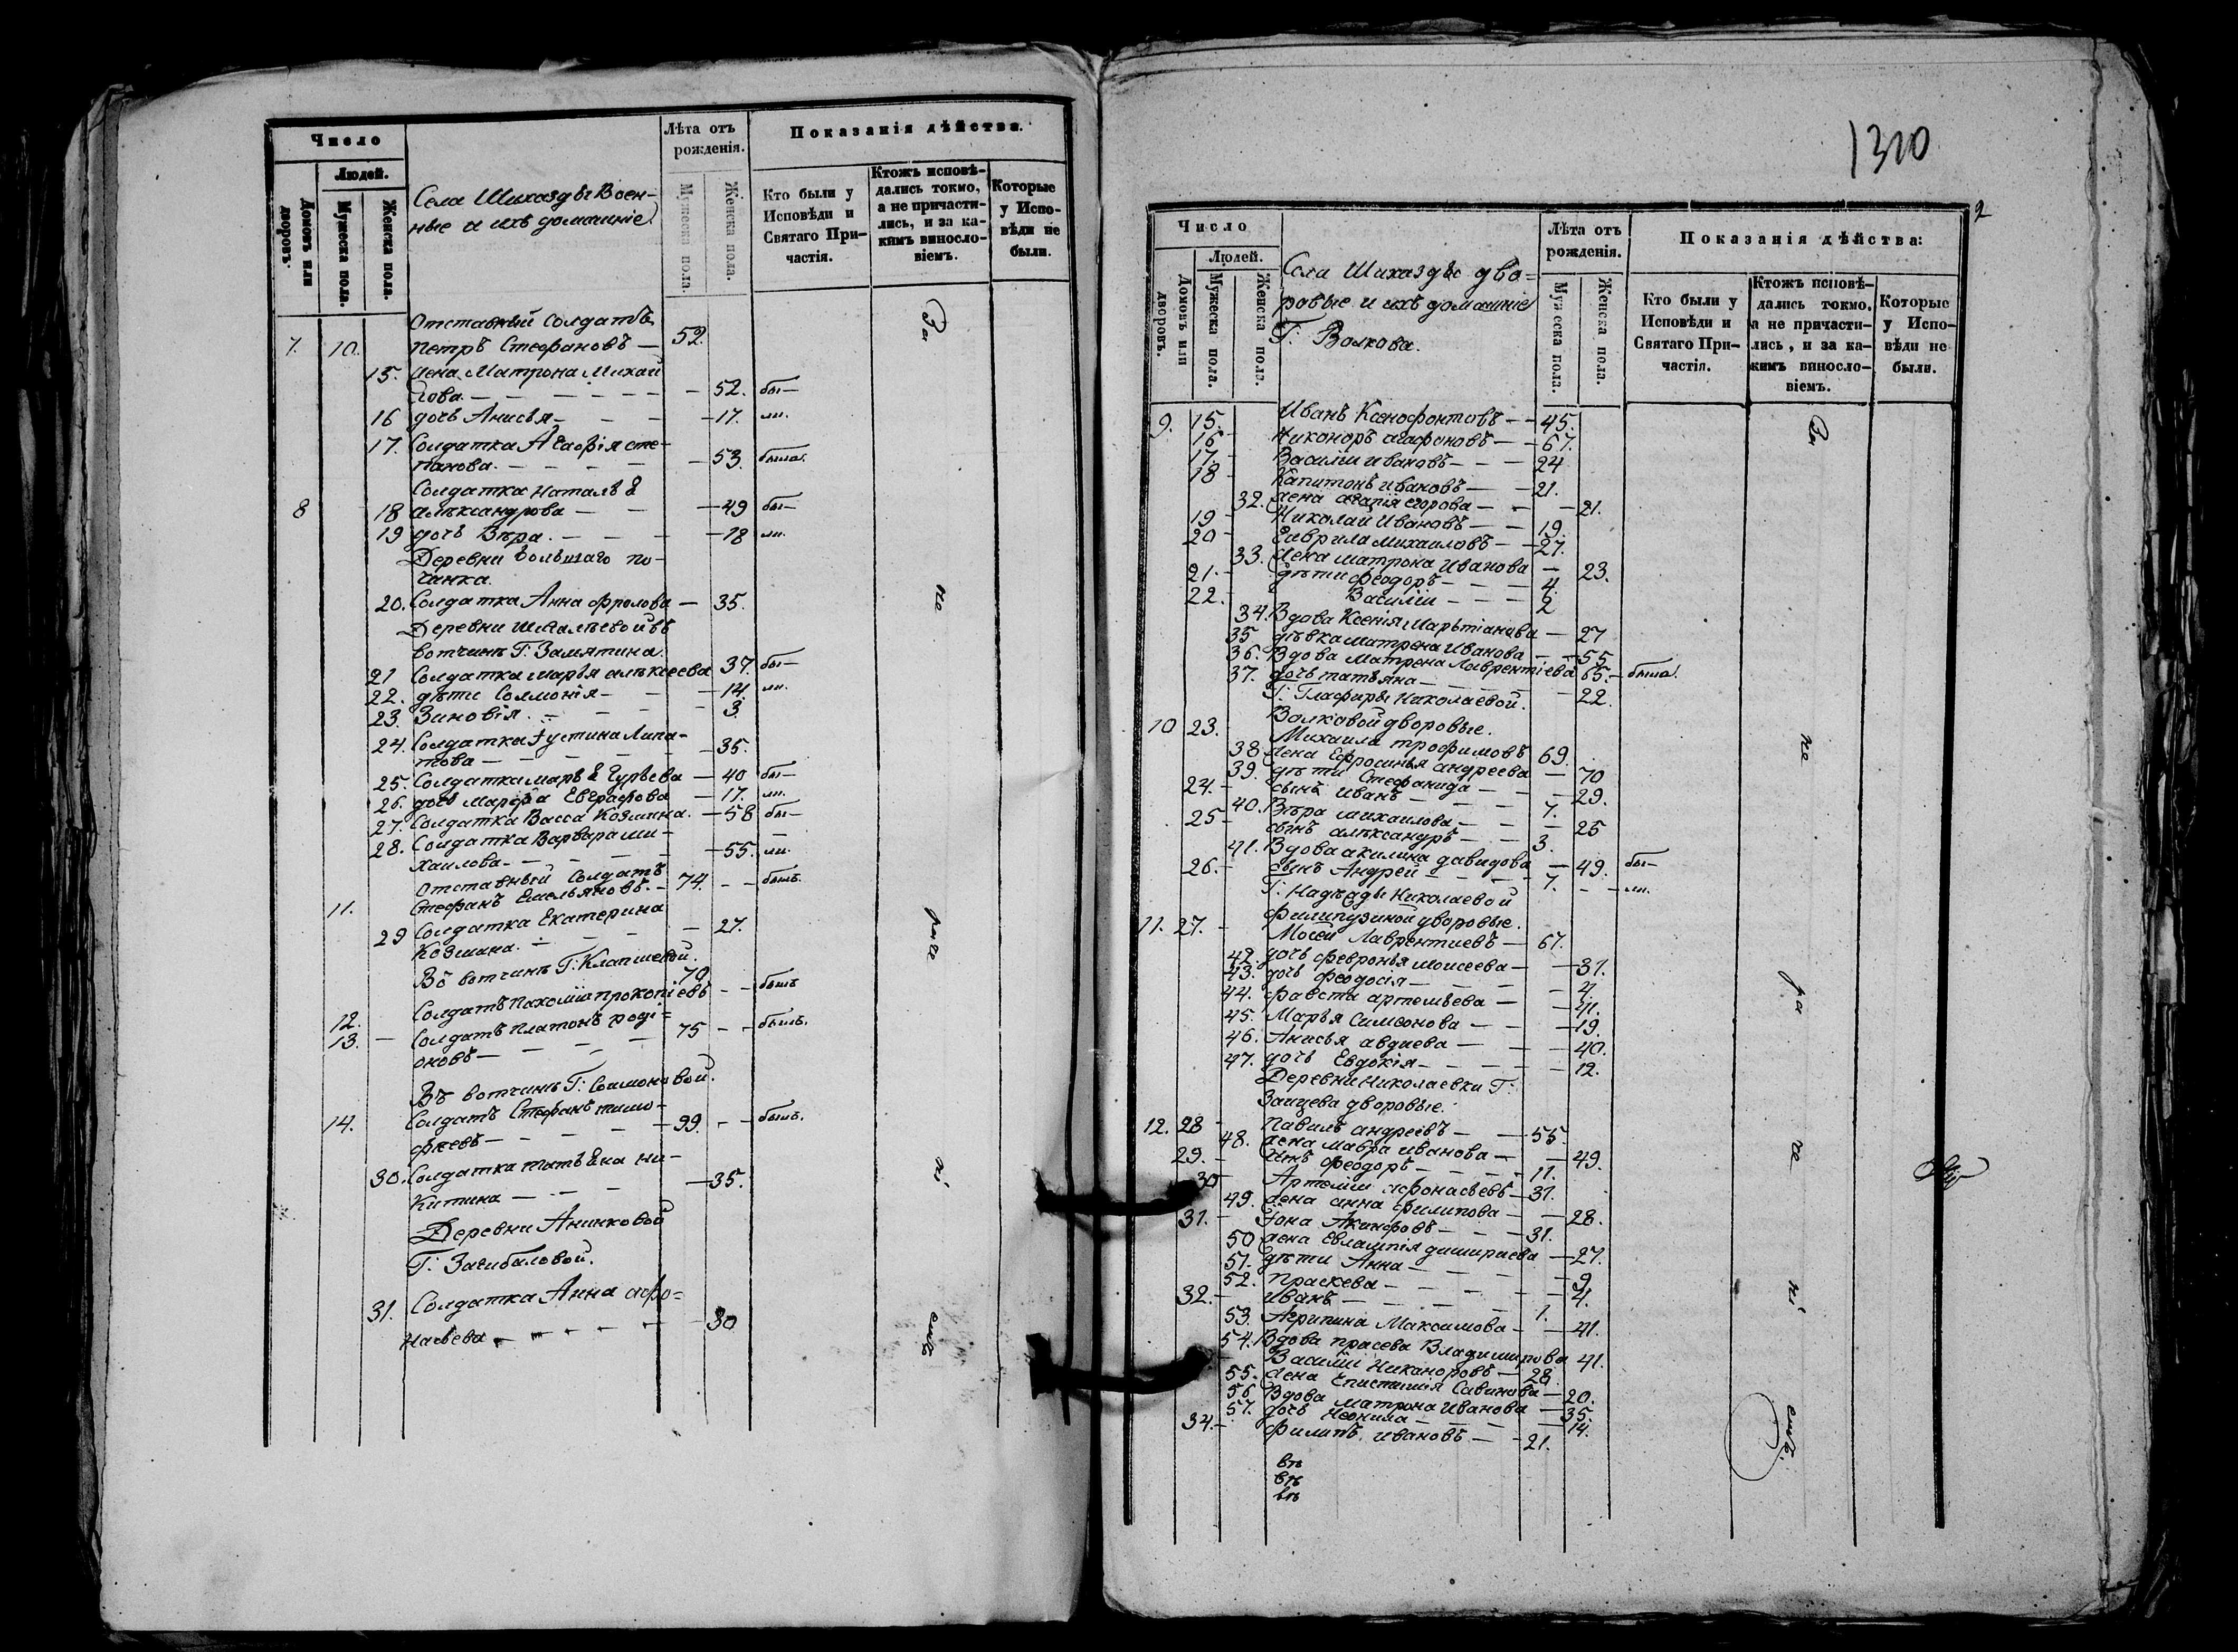 Число
Людей.
Домовъ или дворовъ.
Мужеска пола.
Женска пола.
Села Шихаздѣ Воен-
ные и ихъ домашніе
Лѣта отъ рожденія.
Мужеска пола.
Женска пола.
Показанія дѣйства.
Кто были у Исповѣди и Святаго При-частія.
Ктожъ исповѣ-дались токмо, а не причасти-лись, и за ка-кимъ винosло-віемъ.
Которые у Испо-вѣди не были.
Отставный солдатъ
7. 10. Петръ Стефановъ — 52.
15. жена Матрона Михай
лова — — 52. бы—
16 дочь Анисья — — 17. ли.
17. Солдатка Агафія сте-
панова. — — 53. была.
Солдатка Наталья
8 18 александрова — — 49 бы—
19 дочь Вѣра. — — 18 ли.
Деревни большаго по-
чинка.
20. Солдатка Анна фролова — 35.
Деревни въ
вотчинѣ Г: Замятина.
21 Солдатка марья алексеева 37. бы—
22. дѣти Соломонія — — 14. ли.
23. Зиновія. — — 3.
24. Солдатка Іустина Липа-
това — — 35.
25. Солдатка марья Гурьева — 40 бы—
26. дочь марфа Евграфова — 17. ли.
27. Солдатка Васса Козмина. — 58 бы—
28. Солдатка Варвара ми-
хаилова — — 55. ли.
отставный солдатъ
11. Стефанъ Емельяновъ. — 74. — — былъ.
29 Солдатка Екатерина
Козмина. — — 27.
Въ вотчинѣ Г:
12. Солдатъ Пахомій прокопіевъ 70 — — былъ
13. — Солдатъ платонъ роді=
оновъ — — 75 — — былъ.
Въ вотчинѣ Г: Соимоновой.
14. Солдатъ Стефанъ тимо-
феевъ — — 99. — — былъ.
30. Солдатка татьяна ни-
китина — — 35.
Деревни Анинковой
Г: Загибаловой.
31. Солдатка Анна афо=
насьева — — 30
За
не
ра че
ні
емъ
1310
2
Число
Людей.
Домовъ или дворовъ.
Мужеска пола.
Женска пола.
Села Шихаздѣ дво=
ровые и ихъ домашніе
Г: Волкова.
Лѣта отъ рожденія.
Мужеска пола.
Женска пола.
Показанія дѣйства:
Кто были у Исповѣди и Святаго При-частія.
Ктожъ исповѣ-дались токмо, а не причасти-лись, и за ка-кимъ винosло-віемъ.
Которые у Испо-вѣди не были.
9. 15. Иванъ Ксенофонтовъ — — 45.
16 — Никоноръ агафоновъ — — 67.
17. — Василіи ивановъ — — — 24
18 Капитонъ ивановъ — — 21.
32. жена агапія егорова — — — 21.
19 — Николаи Ивановъ — — 19.
20 — Гаврила михаиловъ — — 27.
33. жена матрона Иванова — 23.
21. — дѣти феодоръ — — — 4.
22. — Василіи — — — 2
34. Вдова Ксенія Мартіанова — 27
35 дѣвка матрена Иванова — — 55
36. Вдова Матрена Лаврентіева 65. — была.
37. дочь татьяна — — — 22.
Г: Глафиры Николаевой.
Волковой дворовые.
10 23. Михаила трофимовъ 69.
38 жена Ефросинья андреева — 70
39. дѣти Стефанида — — — 29.
24. — сынъ иванъ — — — 7.
40. Вѣра михаилова — — 25
25 — сынъ александръ — — 3.
41. Вдова акилина давидова — 49. бы—
26. — сынъ Андрей — — — 7. — — ли.
Г: Надежды Николаевой
филипузиной дворовые.
11. 27. — Мосеи Лаврентиевъ — 67.
42. дочь февронья моисеева — — 31.
43. дочь феодосія — — — 4.
44. фавста артемьева — — 41.
45. Марья Симеонова — — 19.
46. Анисья авдиева — — 40.
47. дочь Евдокія — — — 12.
Деревни Николаевки Г:
Заицева дворовые.
12. 28 — павилъ андреевъ — — 55.
48. жена мавра иванова — — 49.
29. — сынъ феодоръ — — — 11.
30 — Артеміи афонасьевъ — 31.
49. жена анна филипова — — 28.
31. — Іона Акинфовъ — — 31.
50 жена Евлампія — 27.
51. дѣти Анна — — — 9
52. Праскева — — — 4.
32. — Иванъ — — — 1.
53. Агрипина Максимова — — 41.
54. Вдова прасева Владимирова 41.
Василіи Никаноровъ — 28.
55. жена Епистимія Савинова — 20.
56 Вдова матрона иванова — 35.
57. дочь Неонила — — — 14.
34. — филипъ ивановъ — — 21.
За
не
ра
че
ні
емъ.